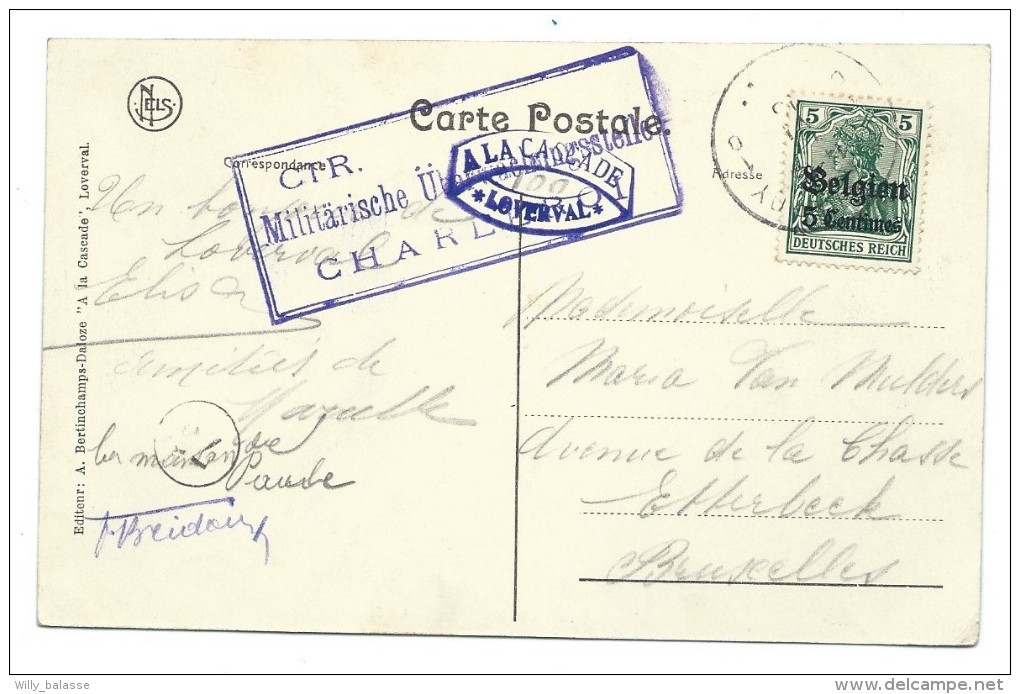 NELS
Carte Postale.
Correspondance
Adresse
CTR.
Militärische Überwachungsstelle
CHARLEROI
A LA CASCADE
100
* LOVERVAL *
5 5
Belgien
5 Centimes
DEUTSCHES REICH
Un bonjour de
Loverval
Elisa
Amitiés de
Marcelle
Mademoiselle
Maria Van Mulders
Avenue de la Chasse
Etterbeek
Bruxelles
Editeur: A. Bertinchamps-Daloze "A la Cascade", Loverval.
Willy_balasse
delcampe.net